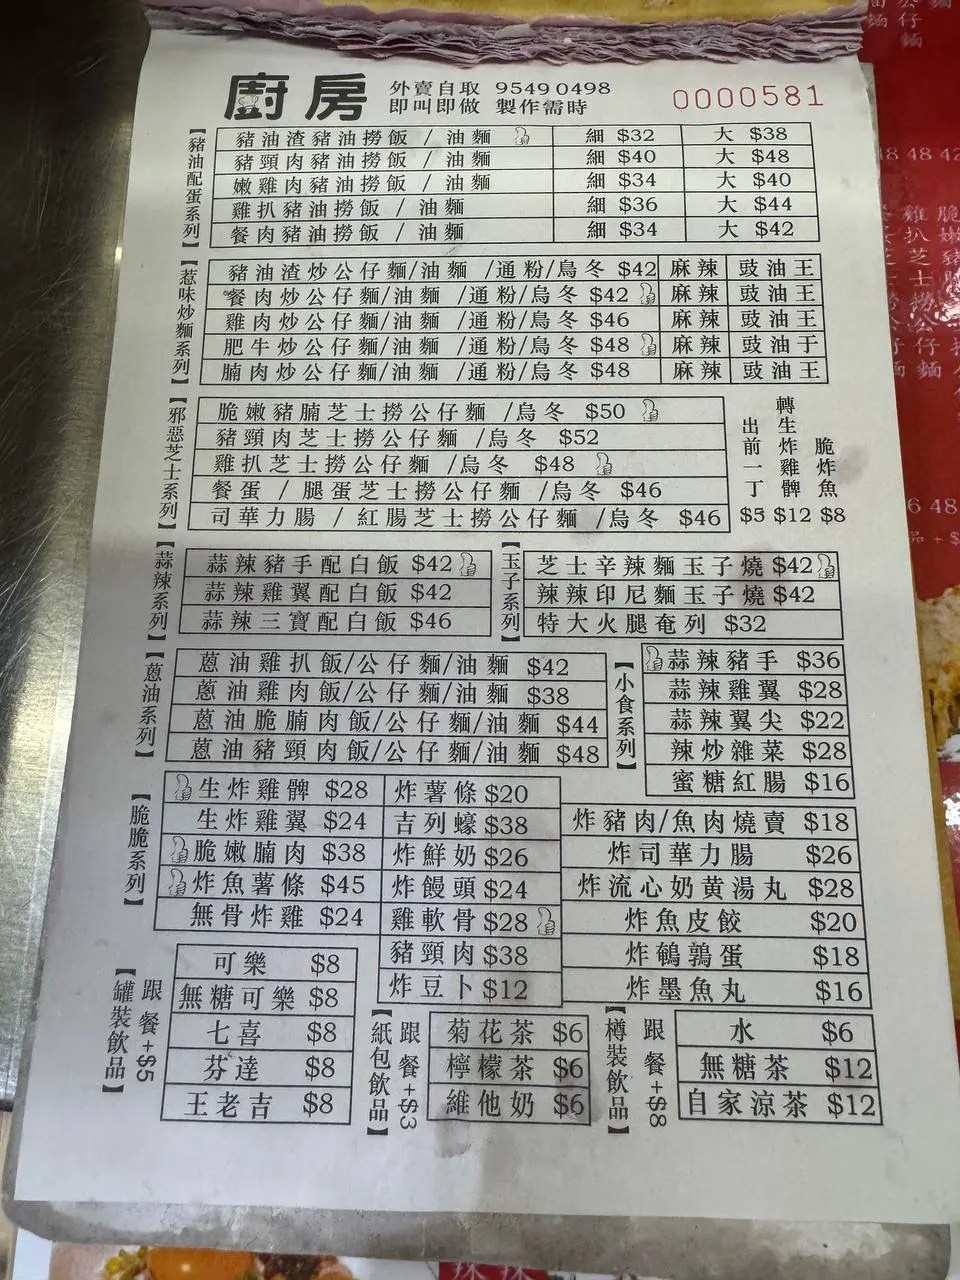 廚房
外賣自取 9549 0498
即叫即做 製作需時
0000581
【豬油配蛋系列】
豬油渣豬油撈飯 / 油麵 細 $32 大 $38
豬頸肉豬油撈飯 / 油麵 細 $40 大 $48
嫩雞肉豬油撈飯 / 油麵 細 $34 大 $40
雞扒豬油撈飯 / 油麵 細 $36 大 $44
餐肉豬油撈飯 / 油麵 細 $34 大 $42
【惹味炒麵系列】
豬油渣炒公仔麵/油麵 /通粉/烏冬 $42 麻辣 豉油王
餐肉炒公仔麵/油麵 /通粉/烏冬 $42 麻辣 豉油王
雞肉炒公仔麵/油麵 /通粉/烏冬 $46 麻辣 豉油王
肥牛炒公仔麵/油麵 /通粉/烏冬 $48 麻辣 豉油于
腩肉炒公仔麵/油麵 /通粉/烏冬 $48 麻辣 豉油王
【邪惡芝士系列】
脆嫩豬腩芝士撈公仔麵 /烏冬 $50
豬頸肉芝士撈公仔麵 /烏冬 $52
雞扒芝士撈公仔麵 /烏冬 $48
餐蛋 / 腿蛋芝士撈公仔麵/烏冬 $46
司華力腸 / 紅腸芝士撈公仔麵 /烏冬 $46
出前一丁 $5
轉生炸雞髀 $12
脆炸魚 $8
【蒜辣系列】
蒜辣豬手配白飯 $42
蒜辣雞翼配白飯 $42
蒜辣三寶配白飯 $46
【玉子系列】
芝士辛辣麵玉子燒 $42
辣辣印尼麵玉子燒 $42
特大火腿奄列 $32
【蔥油系列】
蔥油雞扒飯/公仔麵/油麵 $42
蔥油雞肉飯/公仔麵/油麵 $38
蔥油脆腩肉飯/公仔麵/油麵 $44
蔥油豬頸肉飯/公仔麵/油麵 $48
【小食系列】
蒜辣豬手 $36
蒜辣雞翼 $28
蒜辣翼尖 $22
辣炒雜菜 $28
蜜糖紅腸 $16
【脆脆系列】
生炸雞髀 $28
生炸雞翼 $24
脆嫩腩肉 $38
炸魚薯條 $45
無骨炸雞 $24
炸薯條 $20
吉列蠔 $38
炸鮮奶 $26
炸饅頭 $24
雞軟骨 $28
豬頸肉 $38
炸豆卜 $12
炸豬肉/魚肉燒賣 $18
炸司華力腸 $26
炸流心奶黃湯丸 $28
炸魚皮餃 $20
炸鵪鶉蛋 $18
炸墨魚丸 $16
【罐裝飲品】
跟餐+$5
可樂 $8
無糖可樂 $8
七喜 $8
芬達 $8
王老吉 $8
【紙包飲品】
跟餐+$3
菊花茶 $6
檸檬茶 $6
維他奶 $6
【樽裝飲品】
跟餐+$8
水 $6
無糖茶 $12
自家涼茶 $12